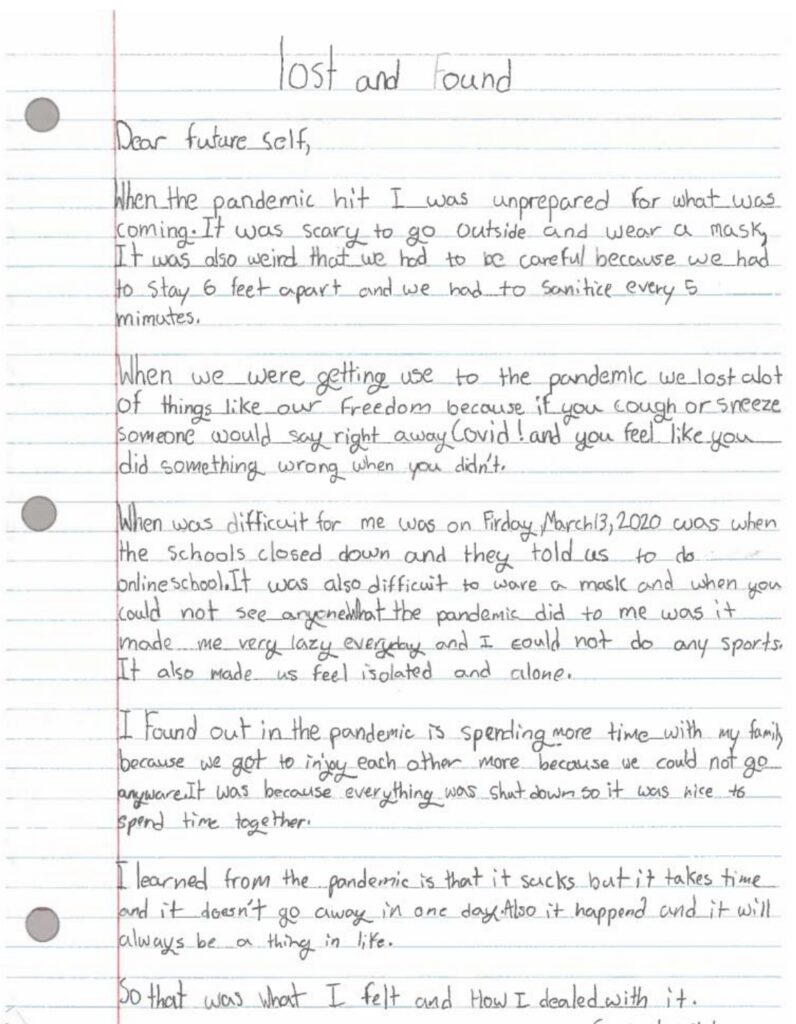 lost and Found
Dear future self,
When the pandemic hit I was unprepared for what was
coming. It was scary to go outside and wear a mask,
It was also weird that we had to be careful because we had
to stay 6 feet apart and we had to sanitice every 5
mimutes.
When we were getting use to the pandemic we lost alot
of things like our freedom because if you cough or sneeze
someone would say right away Covid! and you feel like you
did something wrong when you didn't.
When was difficuit for me was on Firday, March 13, 2020 was when
the schools closed down and they told us to do
online school. It was also difficuit to ware a mask and when you
could not see anyone What the pandemic did to me was it
made me very lazy everyday and I could not do any sports.
It also made us feel isolated and alone.
I Found out in the pandemic is spending more time with my family
because we got to injoy each other more because we could not go
anyware. It was because everything was shut down so it was nice to
spend time together.
I learned from the pandemic is that it sucks but it takes time
and it doesn't go away in one day. Also it happend and it will
always be a thing in life.
So that was what I felt and How I dealed with it.